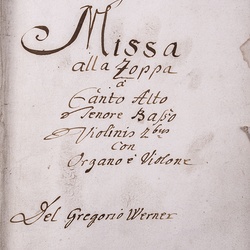 Missa
alla Zoppa
a
Canto Alto
e Tenore Basso
Violinis 2bus
con
Organo è Violone
Del Gregorio Werner